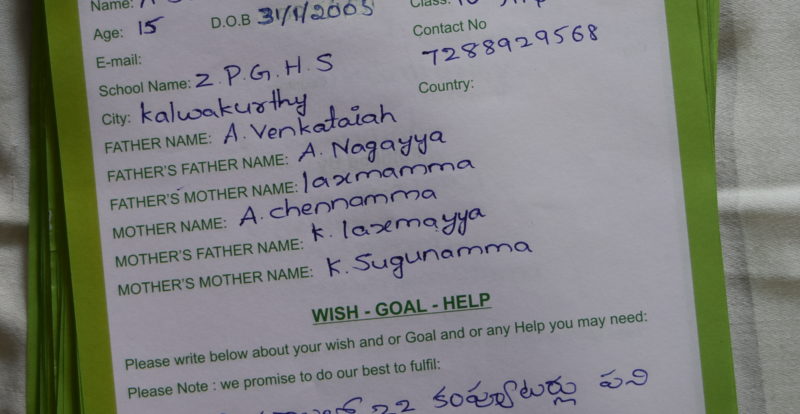 Name:
Age: 15 D.O.B 31/1/2005 Class:
E-mail: Contact No
School Name: Z.P.G.H.S 7288929568
City: Kalwakurthy Country:
FATHER NAME: A. Venkataiah
FATHER'S FATHER NAME: A. Nagayya
FATHER'S MOTHER NAME: laxmamma
MOTHER NAME: A. chennamma
MOTHER'S FATHER NAME: K. laxmayya
MOTHER'S MOTHER NAME: K. Sugunamma
WISH - GOAL - HELP
Please write below about your wish and or Goal and or any Help you may need:
Please Note : we promise to do our best to fulfil:
22 కంప్యూటర్లు పని